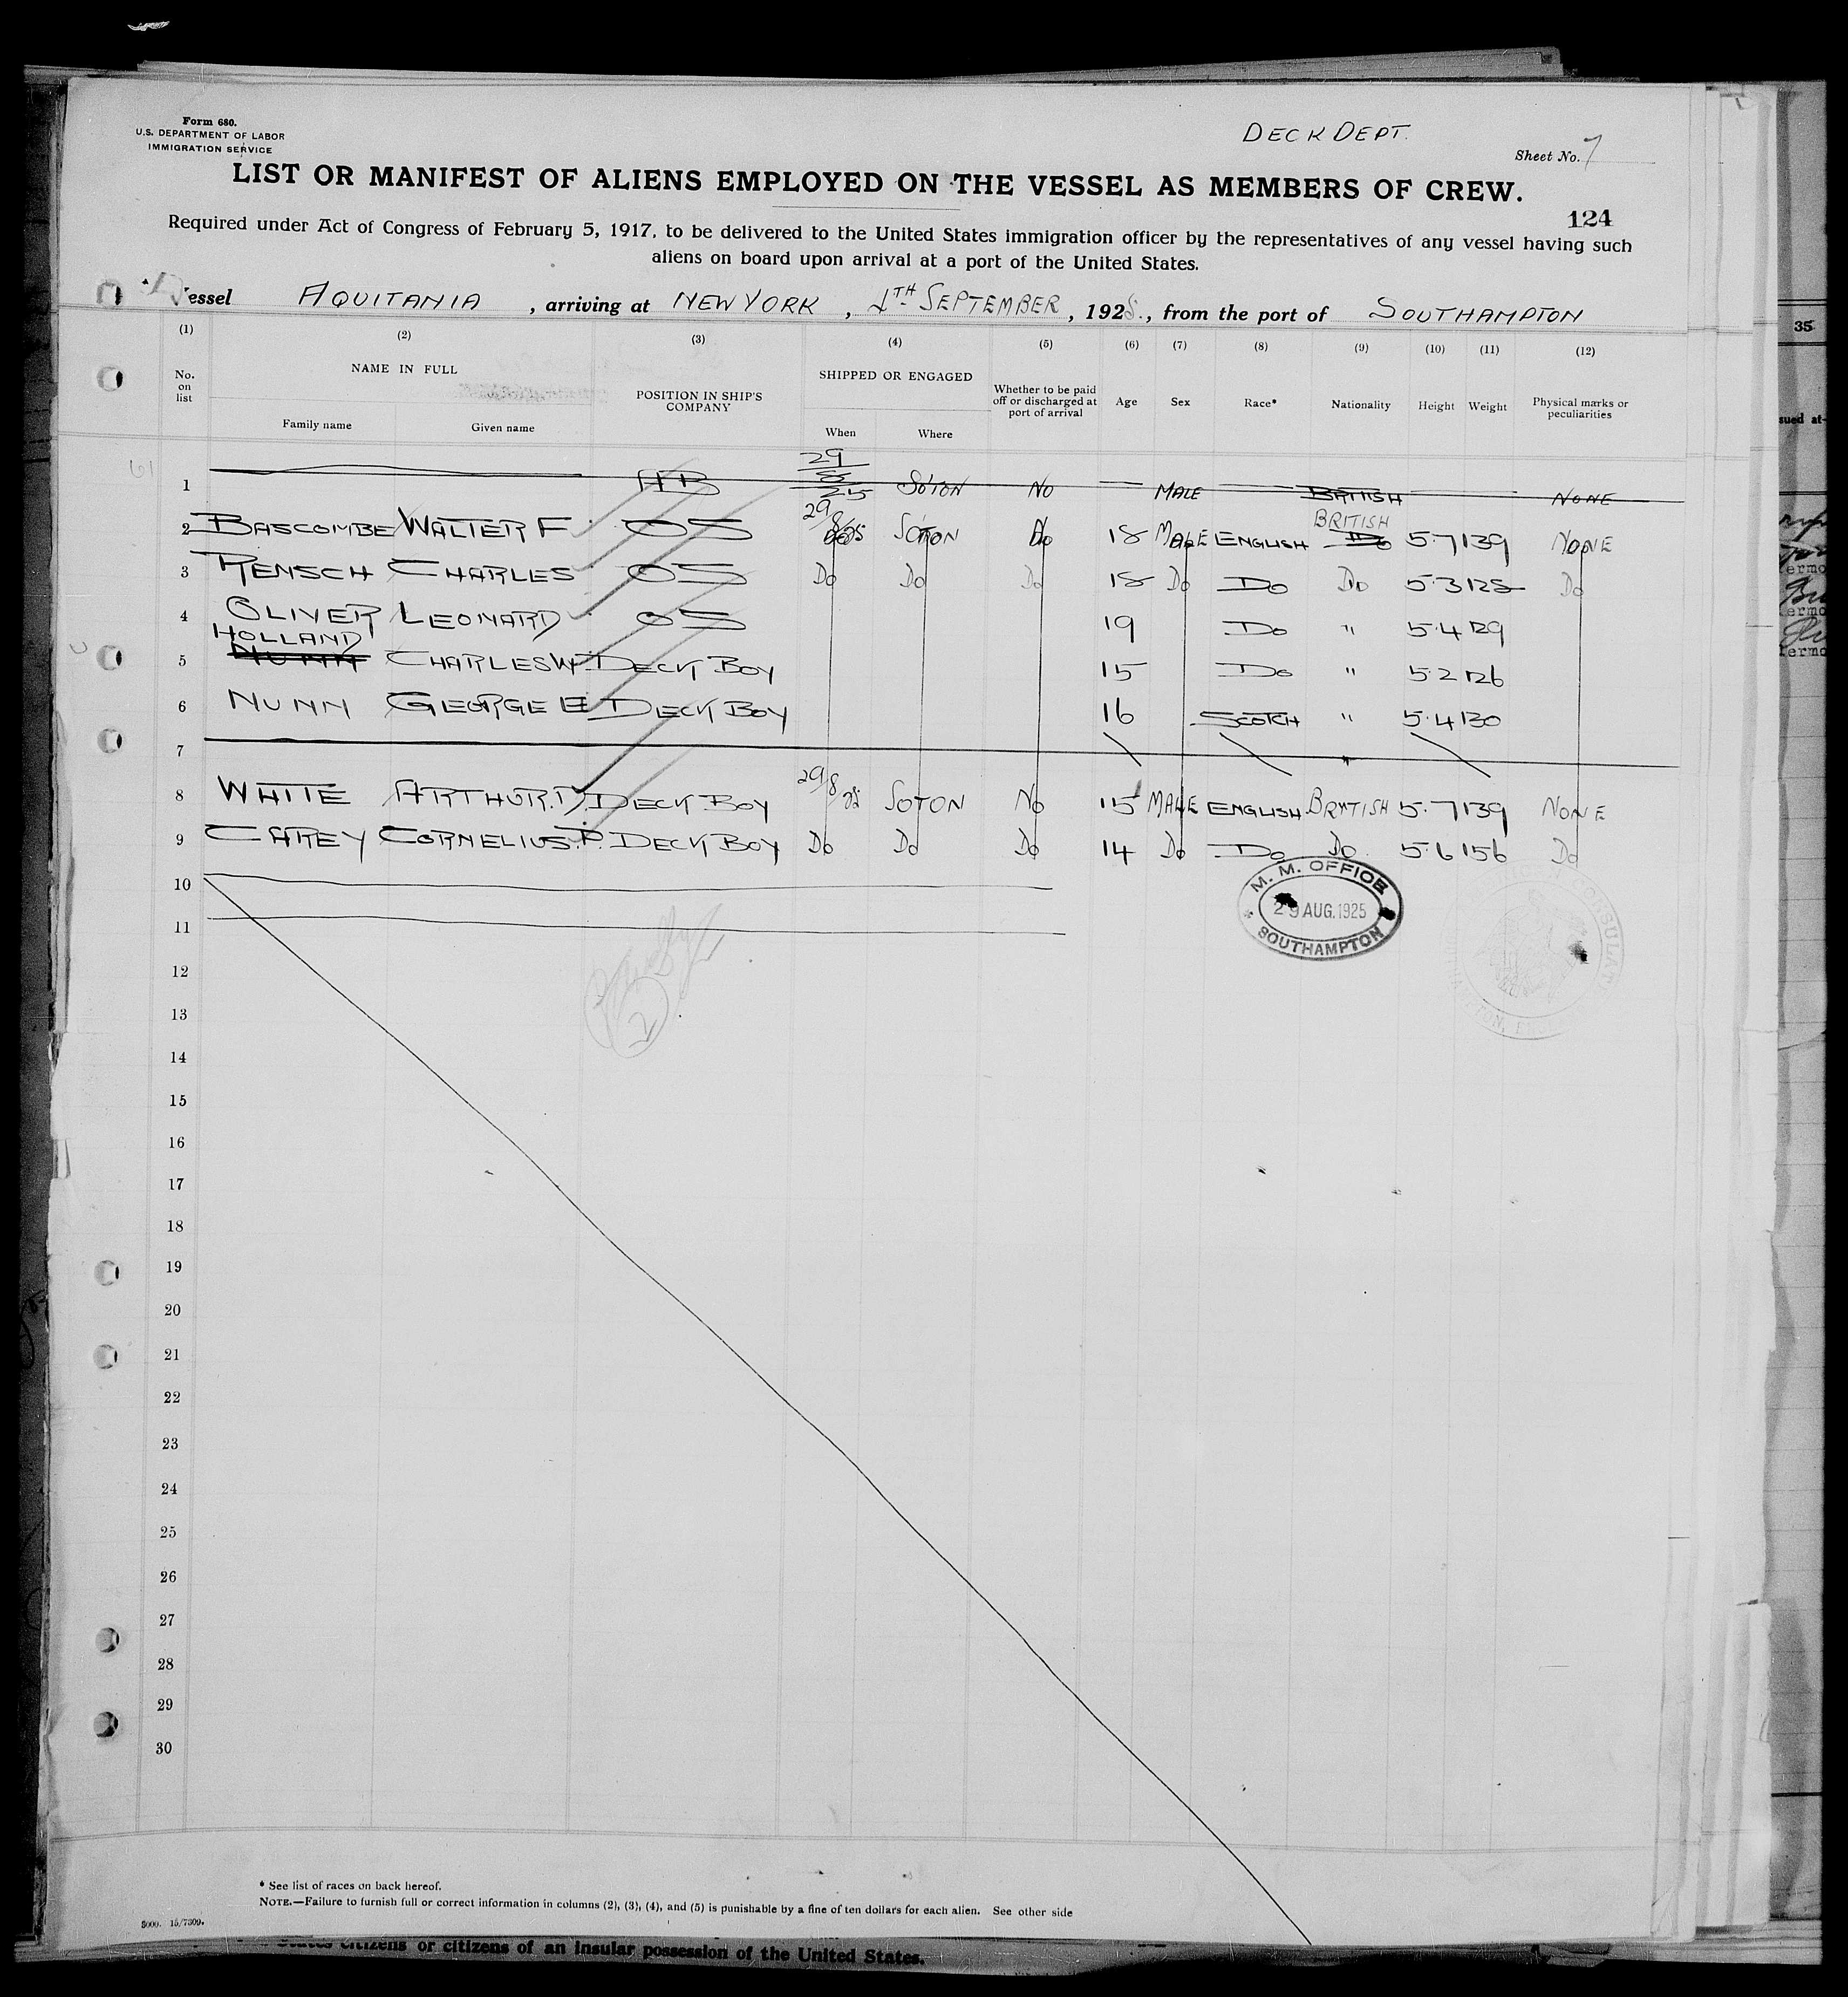 Form 680.
U.S. DEPARTMENT OF LABOR
IMMIGRATION SERVICE
DECK DEPT.
Sheet No. 7
LIST OR MANIFEST OF ALIENS EMPLOYED ON THE VESSEL AS MEMBERS OF CREW.
124
Required under Act of Congress of February 5, 1917, to be delivered to the United States immigration officer by the representatives of any vessel having such
aliens on board upon arrival at a port of the United States.
Vessel AQUITANIA, arriving at NEW YORK, 4TH SEPTEMBER, 1925., from the port of SOUTHAMPTON
(1) (2) (3) (4) (5) (6) (7) (8) (9) (10) (11) (12)
No. on list NAME IN FULL POSITION IN SHIP'S COMPANY SHIPPED OR ENGAGED Whether to be paid off or discharged at port of arrival Age Sex Race* Nationality Height Weight Physical marks or peculiarities
Family name Given name When Where
61
1 AB 29/8/25 SO'TON NO MALE BRITISH NONE
2 BASCOMBE WALTER F OS 29/8/25 SOTON NO 18 MALE ENGLISH BRITISH 5.7 139 NONE
3 RENSCH CHARLES OS DO DO DO 18 DO DO DO 5.3 128 DO
4 OLIVER LEONARD OS 19 DO " 5.4 129
HOLLAND
5 NUNN CHARLES W. DECK BOY 15 DO " 5.2 126
6 NUNN GEORGE E DECK BOY 16 SCOTCH " 5.4 130
7 "
8 WHITE ARTHUR. DECK BOY 29/8/25 SOTON NO 15 MALE ENGLISH BRITISH 5.7 139 NONE
9 CAREY CORNELIUS.P. DECK BOY DO DO DO 14 DO DO DO 5.6 156 DO
10
M. M. OFFICE
29 AUG. 1925
SOUTHAMPTON
11
12
13
2
14
15
16
17
18
19
20
21
22
23
24
25
26
27
28
29
30
* See list of races on back hereof.
NOTE.—Failure to furnish full or correct information in columns (2), (3), (4), and (5) is punishable by a fine of ten dollars for each alien. See other side
5000. 15/7309.
States citizens or citizens of an insular possession of the United States.
35
sued at-